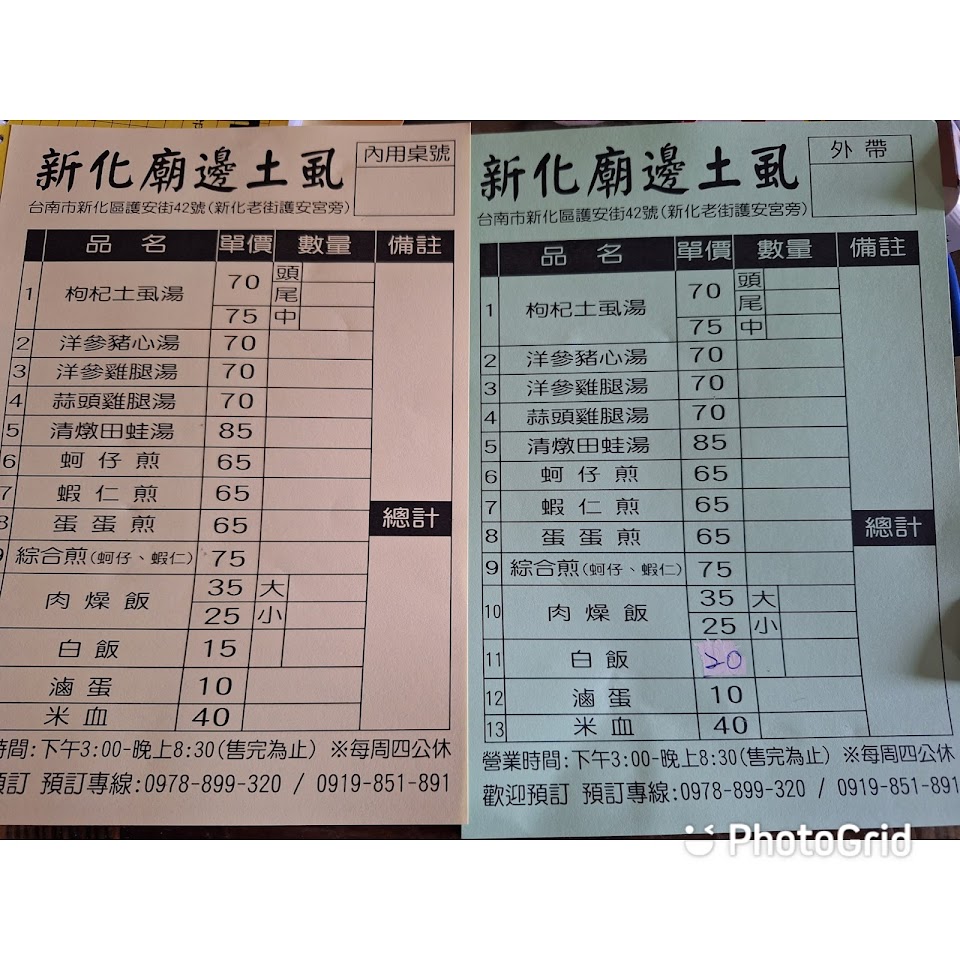 新化廟邊土虱
內用桌號
台南市新化區護安街42號(新化老街護安宮旁)
品名 單價 數量 備註
1 枸杞土虱湯 70 頭
尾
75 中
2 洋參豬心湯 70
3 洋參雞腿湯 70
4 蒜頭雞腿湯 70
5 清燉田蛙湯 85
6 蚵仔煎 65
7 蝦仁煎 65
總計
8 蛋蛋煎 65
9 綜合煎(蚵仔、蝦仁) 75
肉燥飯 35 大
25 小
白飯 15
滷蛋 10
米血 40
時間:下午3:00-晚上8:30(售完為止) ※每周四公休
預訂 預訂專線:0978-899-320 / 0919-851-891
新化廟邊土虱
外帶
台南市新化區護安街42號(新化老街護安宮旁)
品名 單價 數量 備註
1 枸杞土虱湯 70 頭
尾
75 中
2 洋參豬心湯 70
3 洋參雞腿湯 70
4 蒜頭雞腿湯 70
5 清燉田蛙湯 85
6 蚵仔煎 65
7 蝦仁煎 65
總計
8 蛋蛋煎 65
9 綜合煎(蚵仔、蝦仁) 75
10 肉燥飯 35 大
25 小
11 白飯 20
12 滷蛋 10
13 米血 40
營業時間:下午3:00-晚上8:30(售完為止) ※每周四公休
歡迎預訂 預訂專線:0978-899-320 / 0919-851-891
PhotoGrid